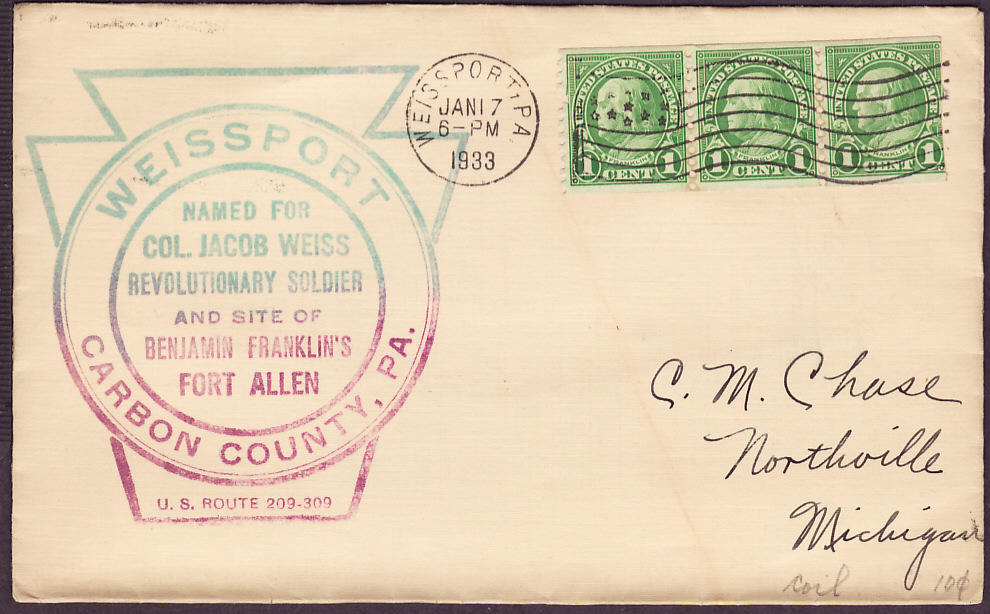 WEISSPORT
NAMED FOR
COL. JACOB WEISS
REVOLUTIONARY SOLDIER
AND SITE OF
BENJAMIN FRANKLIN'S
FORT ALLEN
CARBON COUNTY, PA.
U. S. ROUTE 209-309
WEISSPORT, PA.
JAN 17
6-PM
1933
UNITED STATES POSTAGE
FRANKLIN
1 CENT 1
UNITED STATES POSTAGE
FRANKLIN
1 CENT 1
UNITED STATES POSTAGE
FRANKLIN
1 CENT 1
C. M. Chase
Northville
Michigan
coil 10¢